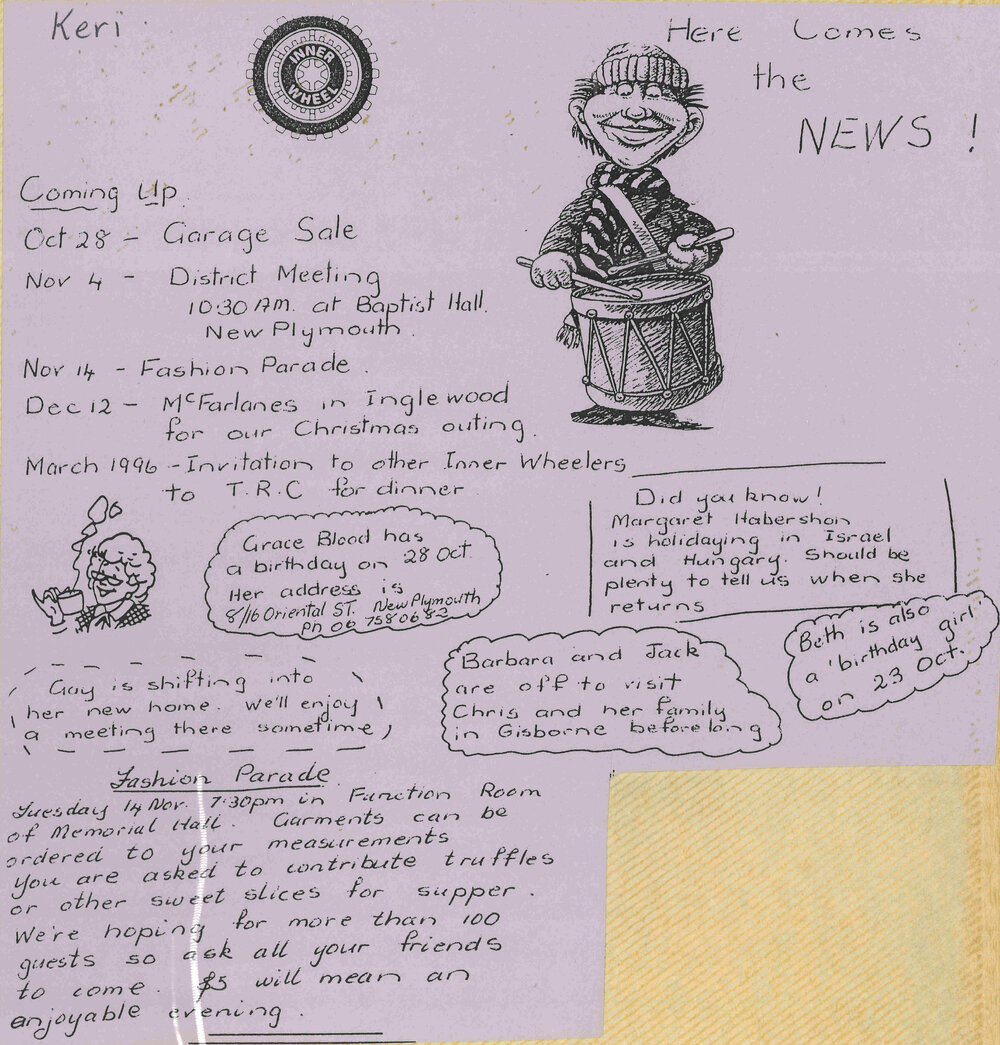 Keri
INNER
WHEEL
Here Comes
the
NEWS !
Coming Up.
Oct 28 - Garage Sale
Nov 4 - District Meeting
10.30 AM. at Baptist Hall.
New Plymouth.
Nov 14 - Fashion Parade.
Dec 12 - McFarlanes in Inglewood
for our Christmas outing.
March 1996 - Invitation to other Inner Wheelers
to T.R.C for dinner.
Did you know!
Margaret Habershon
is holidaying in Israel
and Hungary. Should be
plenty to tell us when she
returns
Grace Blood has
a birthday on 28 Oct.
Her address is
8/16 Oriental ST. New Plymouth
Ph 06 7580682
Beth is also
a 'birthday girl'
on 23 Oct.
Barbara and Jack
are off to visit
Chris and her family
in Gisborne before long
Gay is shifting into
her new home. We'll enjoy
a meeting there sometime
Fashion Parade.
Tuesday 14 Nov. 7.30pm in Function Room
of Memorial Hall. Garments can be
ordered to your measurements
You are asked to contribute truffles
or other sweet slices for supper.
We're hoping for more than 100
guests so ask all your friends
to come. $5 will mean an
enjoyable evening.